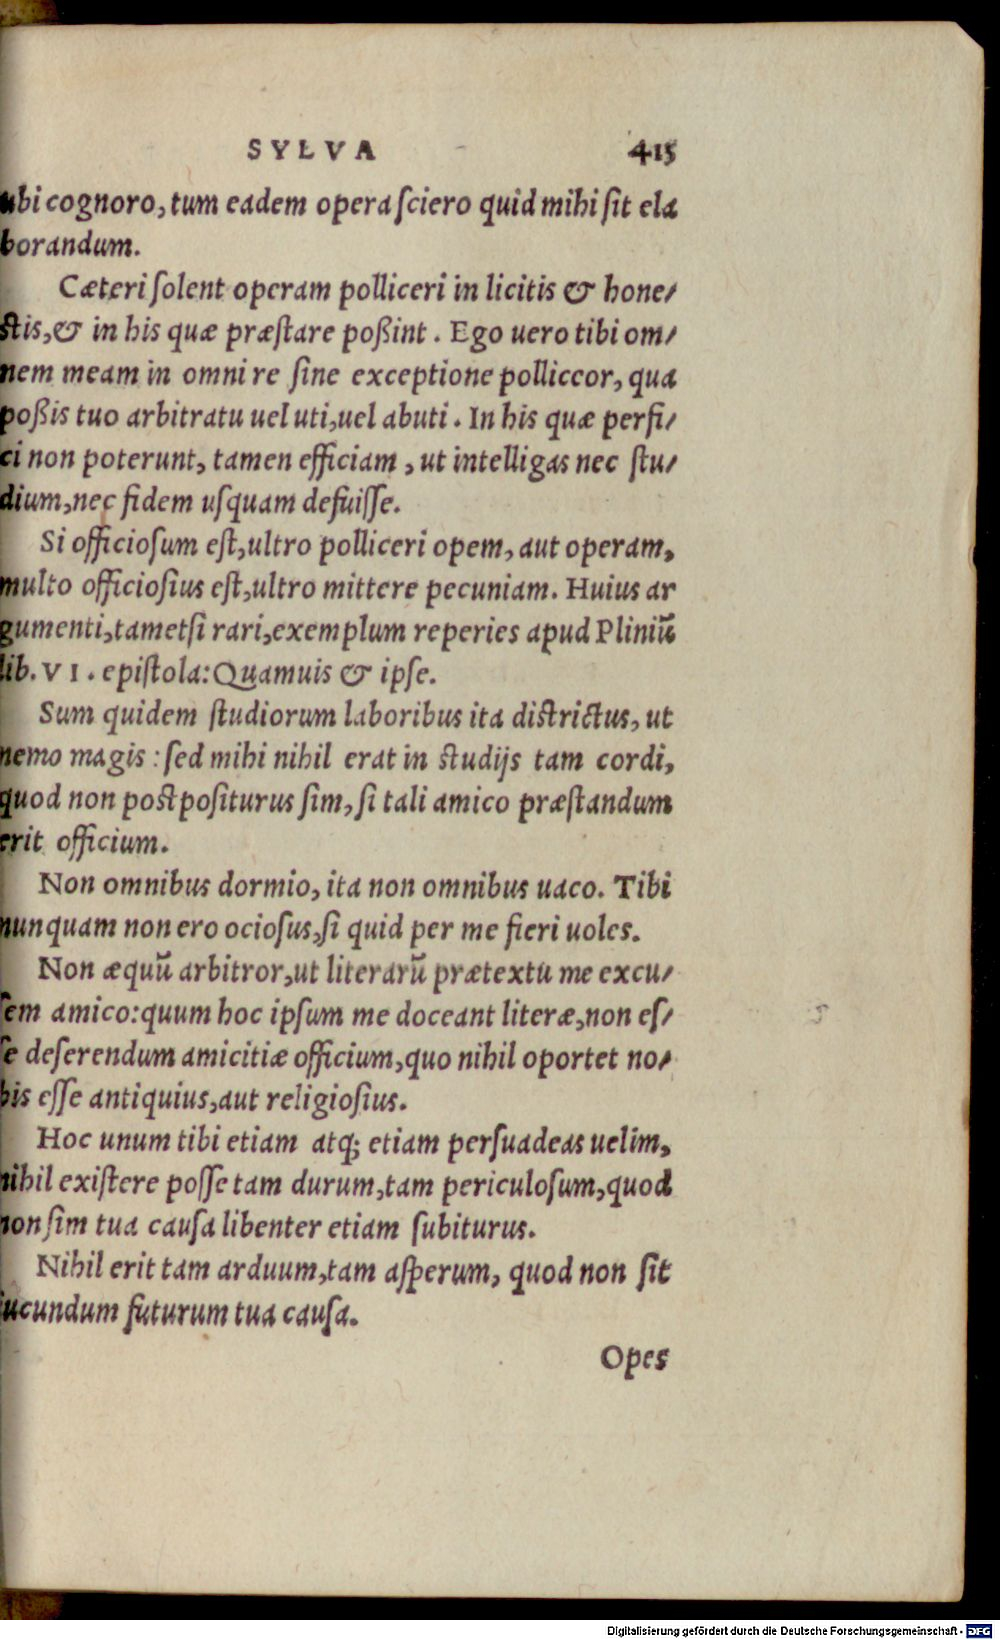 SYLVA 415
ubi cognoro, tum eadem opera ſciero quid mihi ſit ela
borandum.
Cæteri ſolent operam polliceri in licitis & hone/
ſtis, & in his quæ præſtare poßint. Ego uero tibi om/
nem meam in omni re ſine exceptione polliceor, qua
poßis tuo arbitratu uel uti, uel abuti. In his quæ perfi/
ci non poterunt, tamen efficiam, ut intelligas nec ſtu/
dium, nec fidem uſquam defuiſſe.
Si officioſum eſt, ultro polliceri opem, aut operam,
multo officioſius eſt, ultro mittere pecuniam. Huius ar
gumenti, tametſi rari, exemplum reperies apud Pliniũ
lib. VI. epiſtola: Quamuis & ipſe.
Sum quidem ſtudiorum laboribus ita diſtrictus, ut
nemo magis: ſed mihi nihil erat in ſtudijs tam cordi,
quod non poſtpoſiturus ſim, ſi tali amico præſtandum
erit officium.
Non omnibus dormio, ita non omnibus uaco. Tibi
nunquam non ero ocioſus, ſi quid per me fieri uoles.
Non æquũ arbitror, ut literarũ prætextu me excu/
ſem amico: quum hoc ipſum me doceant literæ, non eſ/
ſe deſerendum amicitiæ officium, quo nihil oportet no/
bis eſſe antiquius, aut religioſius.
Hoc unum tibi etiam atq; etiam perſuadeas uelim,
nihil exiſtere poſſe tam durum, tam periculoſum, quod
non ſim tua cauſa libenter etiam ſubiturus.
Nihil erit tam arduum, tam aſperum, quod non ſit
iucundum futurum tua cauſa.
Opes
Digitalisierung gefördert durch die Deutsche Forschungsgemeinschaft - DFG